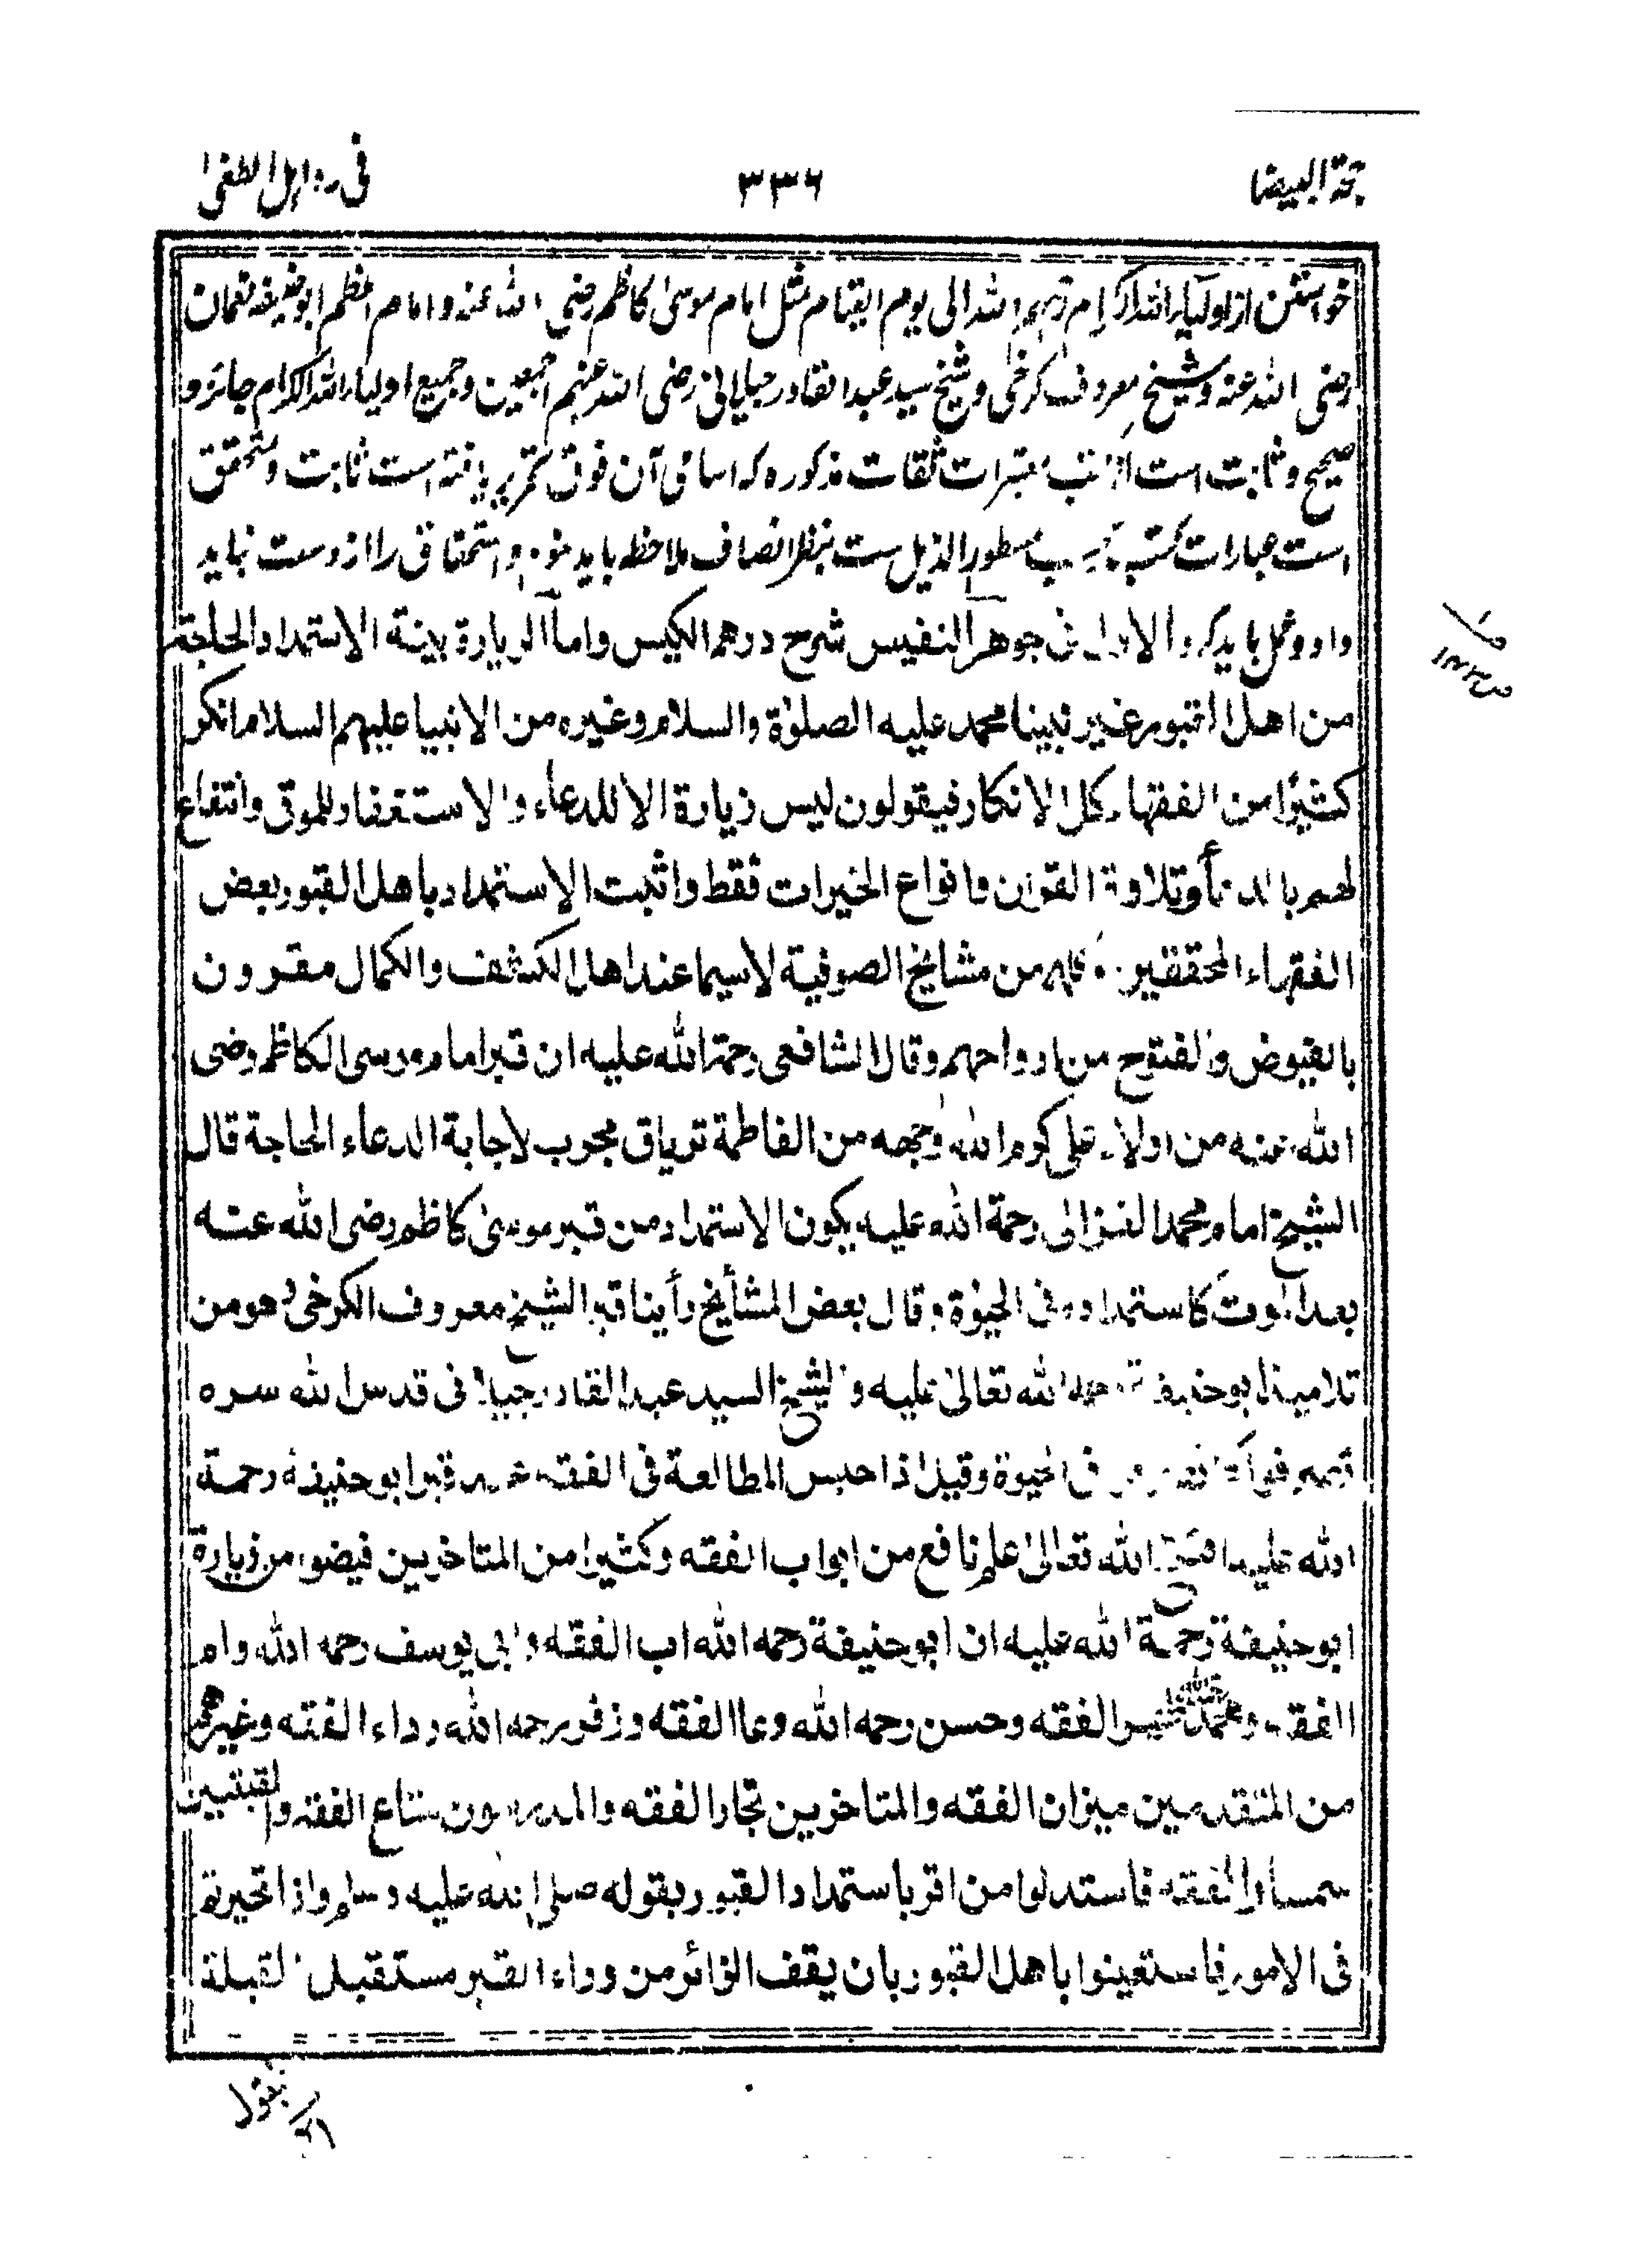 حجة البيضا ٣٣٦ فى رد اهل الطغى
خواستن از اوليآء الله الكرام رحمهم الله الى يوم القيام مثل امام موسىٰ كاظم رضى الله عنه و امام اعظم ابو حنيفه نعمان
رضى الله عنه و شيخ معروف كرخى و شيخ سيد عبد القادر جيلانى رضى الله عنهم اجمعين و جميع اولياء الله الكرام جائز و
صحيح و ثابت است از كتب معتبرات ثقات مذكوره كه اسامى آن فوق تحرير يافته است ثابت و متحقق
است عبارات كتب مسطور الذيل ست بنظر انصاف ملاحظه بايد نمود و استحقاقى را از دست نبايد
داد و عمل بايد كرد الاول فى جوهر النفيس شرح درهم الكيس واما الزيارة بينة الاستمداد الحاجة
من اهل القبور غير نبينا محمد عليه الصلوٰة والسلام وغيره من الانبيا عليهم السلام انكر
كثيرًا من الفقهاء كل الانكار فيقولون ليس زيارة الا للدعاء والاستغفار للموتى وانتفاع
لهم بالدعاء وتلاوة القران وانواع الخيرات فقط واثبت الاستمداد باهل القبور بعض
الفقهاء المحققين من مشايخ الصوفية لاسيما عند اهل الكشف والكمال مقرون
بالفيوض والفتوح من ارواحهم وقال الشافعى رحمة الله عليه ان قبر امام موسى الكاظم رضى
الله عنه من اولاد على كرم الله وجهه من الفاطمة ترياق مجرب لاجابة الدعاء الحاجة قال
الشيخ امام محمد الغزالى رحمة الله عليه يكون الاستمداد من قبر موسىٰ كاظم رضى الله عنه
بعد الموت كاستمداده فى الحيوٰة وقال بعض المشأيخ رأينا قبر الشيخ معروف الكرخى وهو من
تلاميذ ابو حنيفة رحمه الله تعالىٰ عليه والشيخ السيد عبد القادر جيلانى قدس الله سره
فى الحيوة وقيل اذا حبس المطالعة فى الفقه عند قبر ابو حنيفة رحمة
الله عليه افتح الله تعالىٰ علم نافع من ابواب الفقه وكثيرا من المتاخرين فيضوا من زيارة
ابو حنيفة رحمة الله عليه ان ابو حنيفة رحمه الله اب الفقه وابى يوسف رحمه الله وام
الفقه ومحمد رحمه الله شير الفقه وحسن رحمه الله وعا الفقه وزفر رحمه الله رداء الفقه وغيرهم
من المتقدمين ميزان الفقه والمتاخرين تجار الفقه والمدرسون متاع الفقه و
سمسار الفقه فاستدلوا من اقر باستمداد القبور بقوله صلى الله عليه وسلم واذا تحيرتم
فى الامور فاستعينوا باهل القبور بان يقف الزائر من وراء القبر مستقبل القبلة